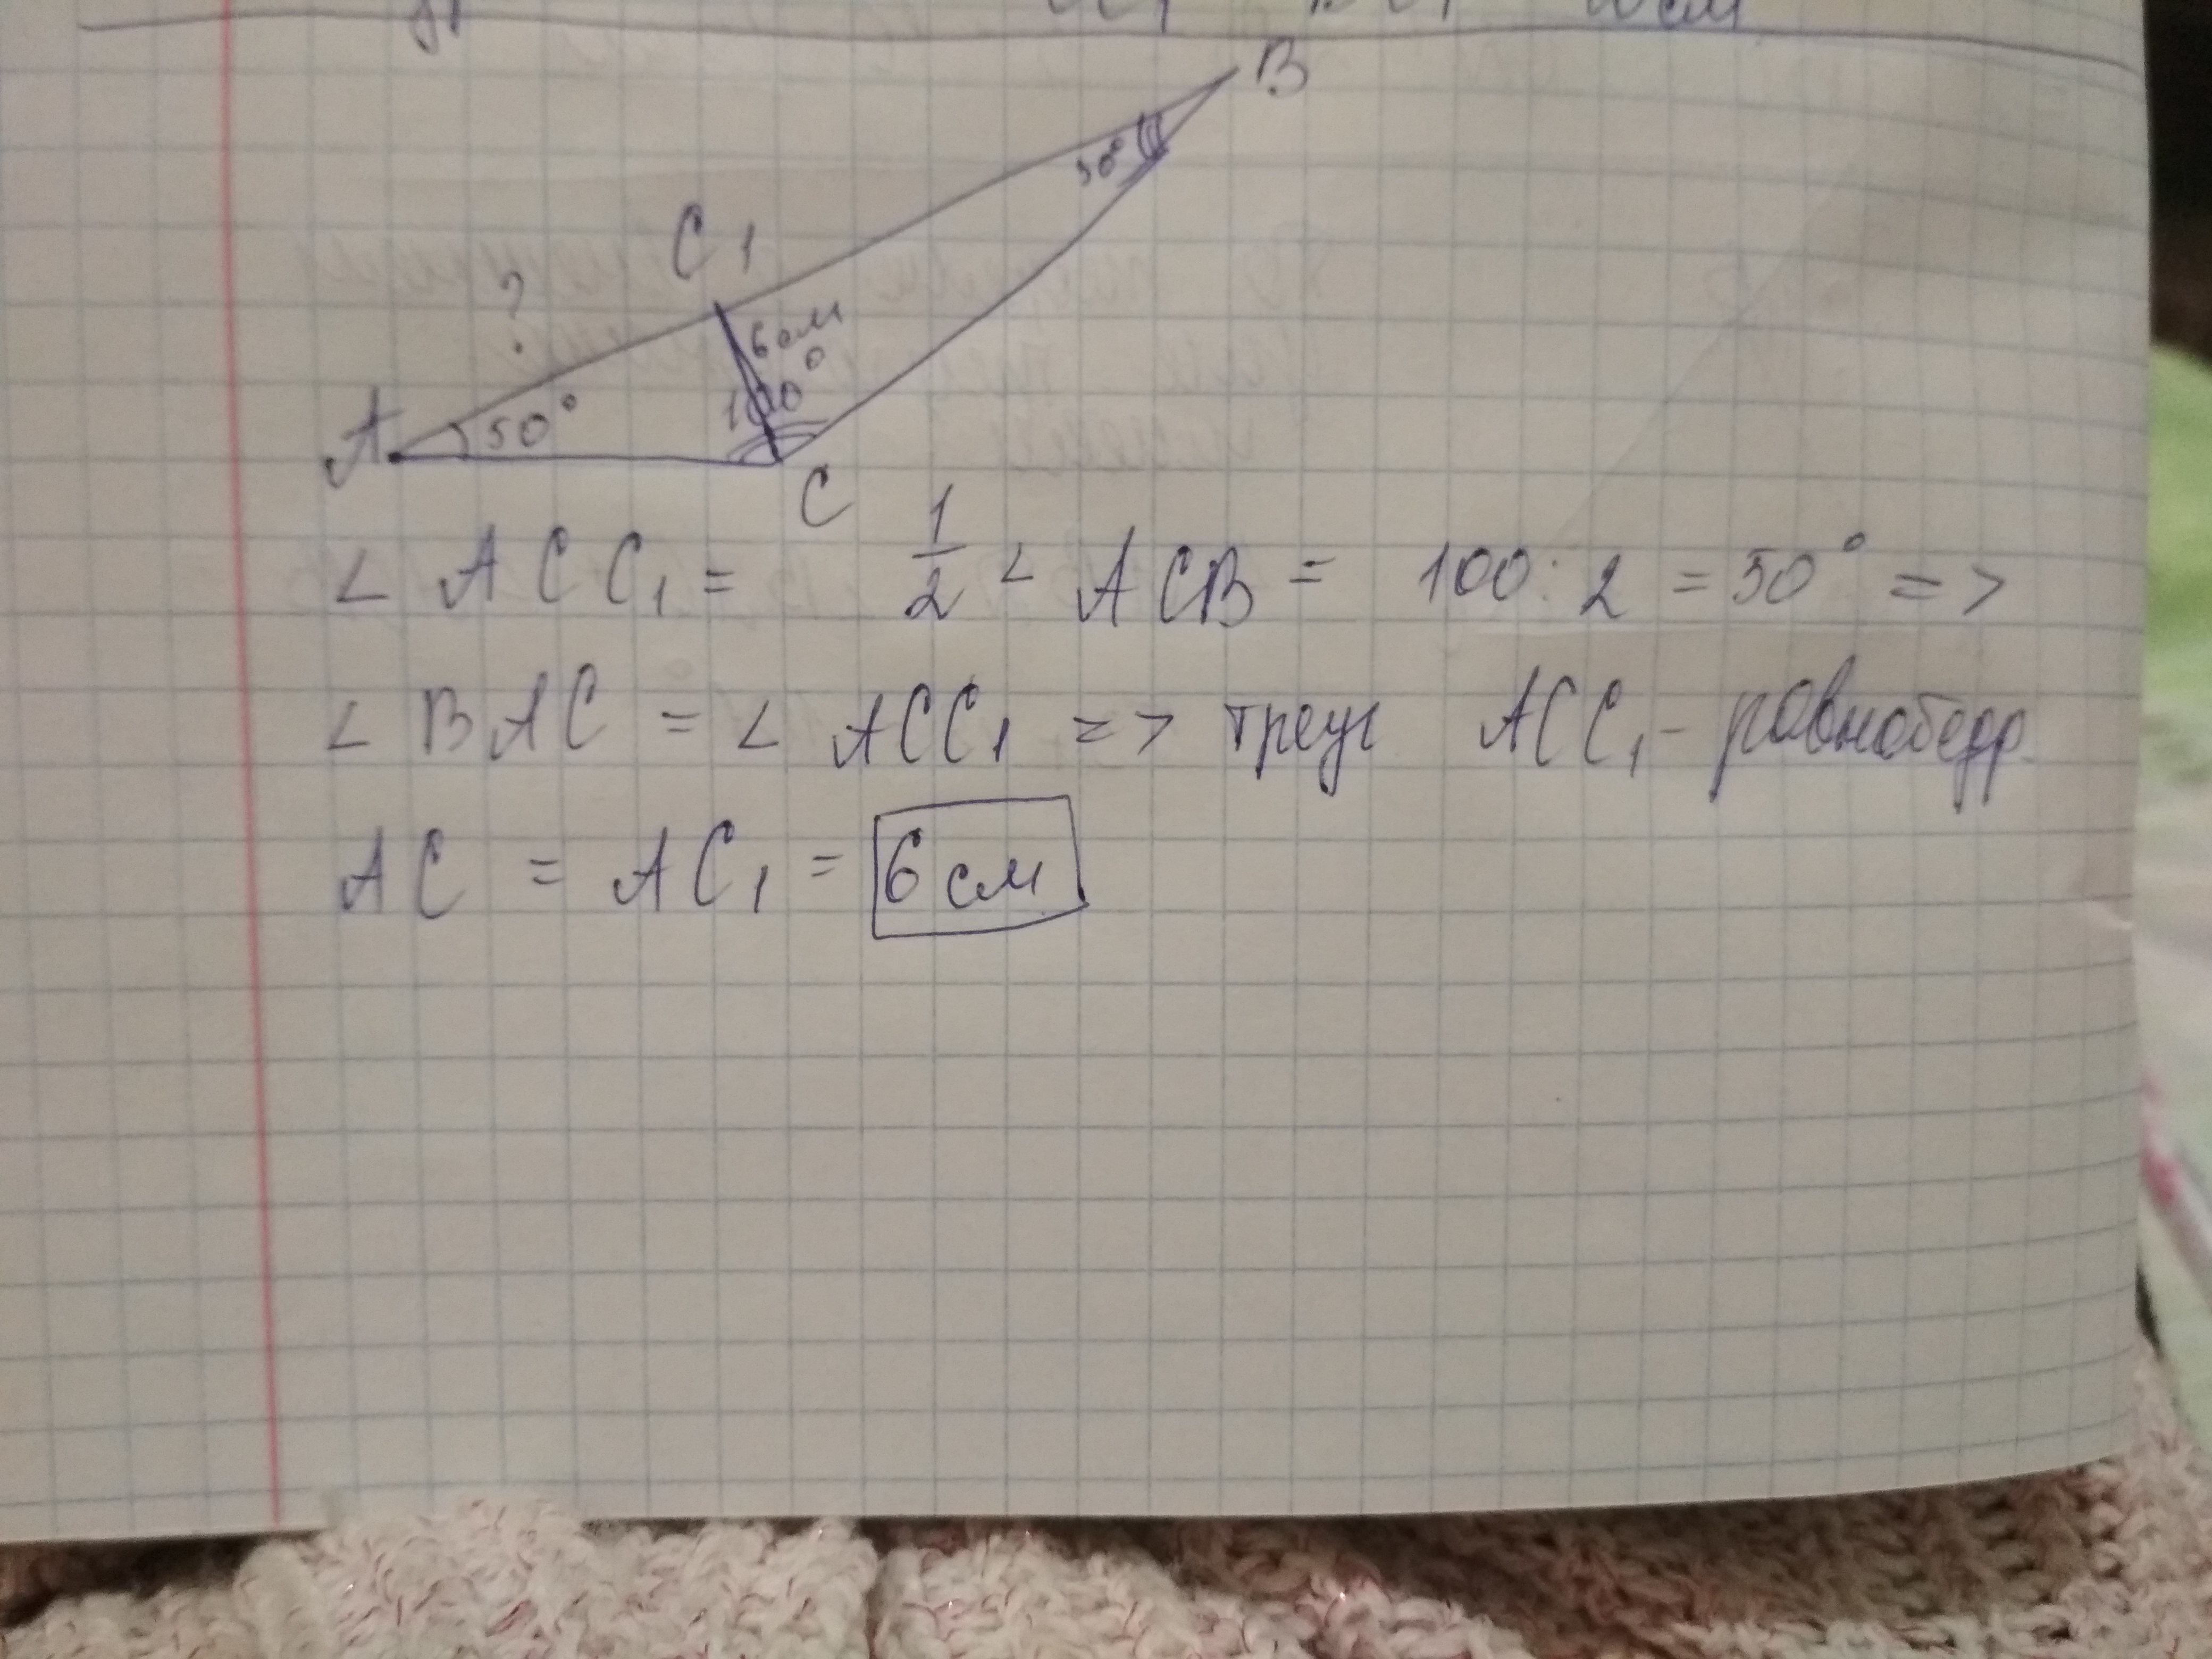 B
30°
C1
?
6 см
100°
A
50°
C
< ACC1 = 1/2 < ACB = 100 : 2 = 50° =>
< BAC = < ACC1 => треуг ACC1 - равнобедр.
AC = AC1 = 6 см